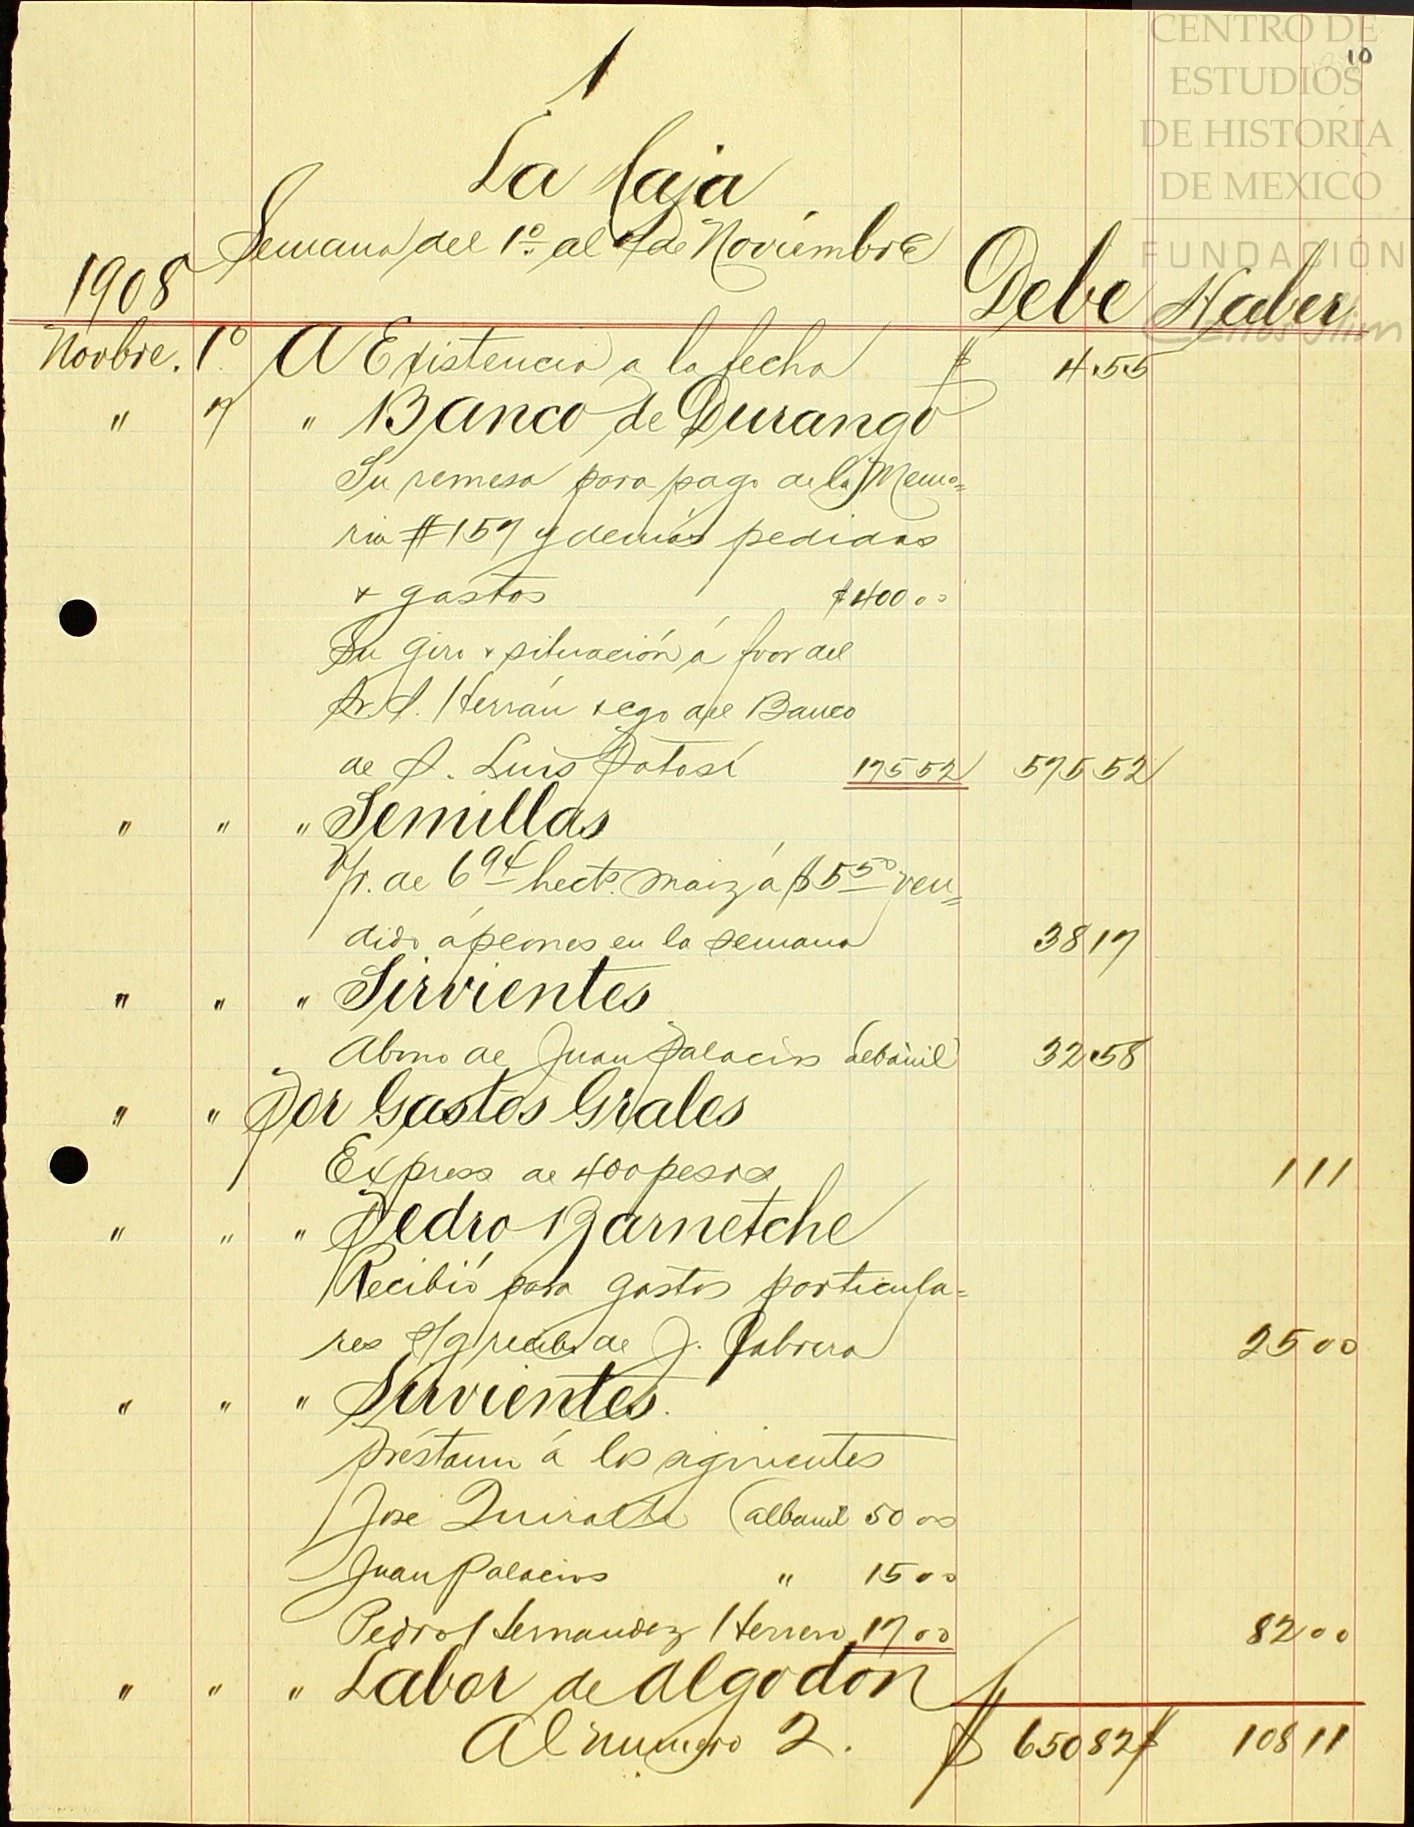 CENTRO DE
ESTUDIOS
DE HISTORIA
DE MEXICO
FUNDACIÓN
10
1
La Caja
Semana del 1º al 7 de Noviembre
1908 Debe Haber
Novbre. 1º A Existencia a la fecha $ 4.55
" 7 " Banco de Durango
Su remesa para pago de la Memo=
ria #157 y demás pedidos
y gastos $400 00
Su giro y situación á fvor del
Sr. S. Herrán y cgo del Banco
de S. Luis Potosí 175 52 575 52
" " " Semillas
V/r. de 6 94 hect. maiz á $5 50 ven=
dido á peones en la semana 38 17
" " " Sirvientes
Abono de Juan Palacios (albañil) 32.58
" " Por Gastos Grales
Express de 400 pesos 1 11
" " " Pedro Barnetche
Recibió para gastos particula=
res s/g recibo de J. Cabrera 25 00
" " " Sirvientes.
Préstamo á los siguientes
José (albañil 50 00
Juan Palacios " 15 00
Pedro Hernandez Herrero 17 00 82 00
" " " Labor de Algodon
Al numero 2. $ 650 82 $ 108 11